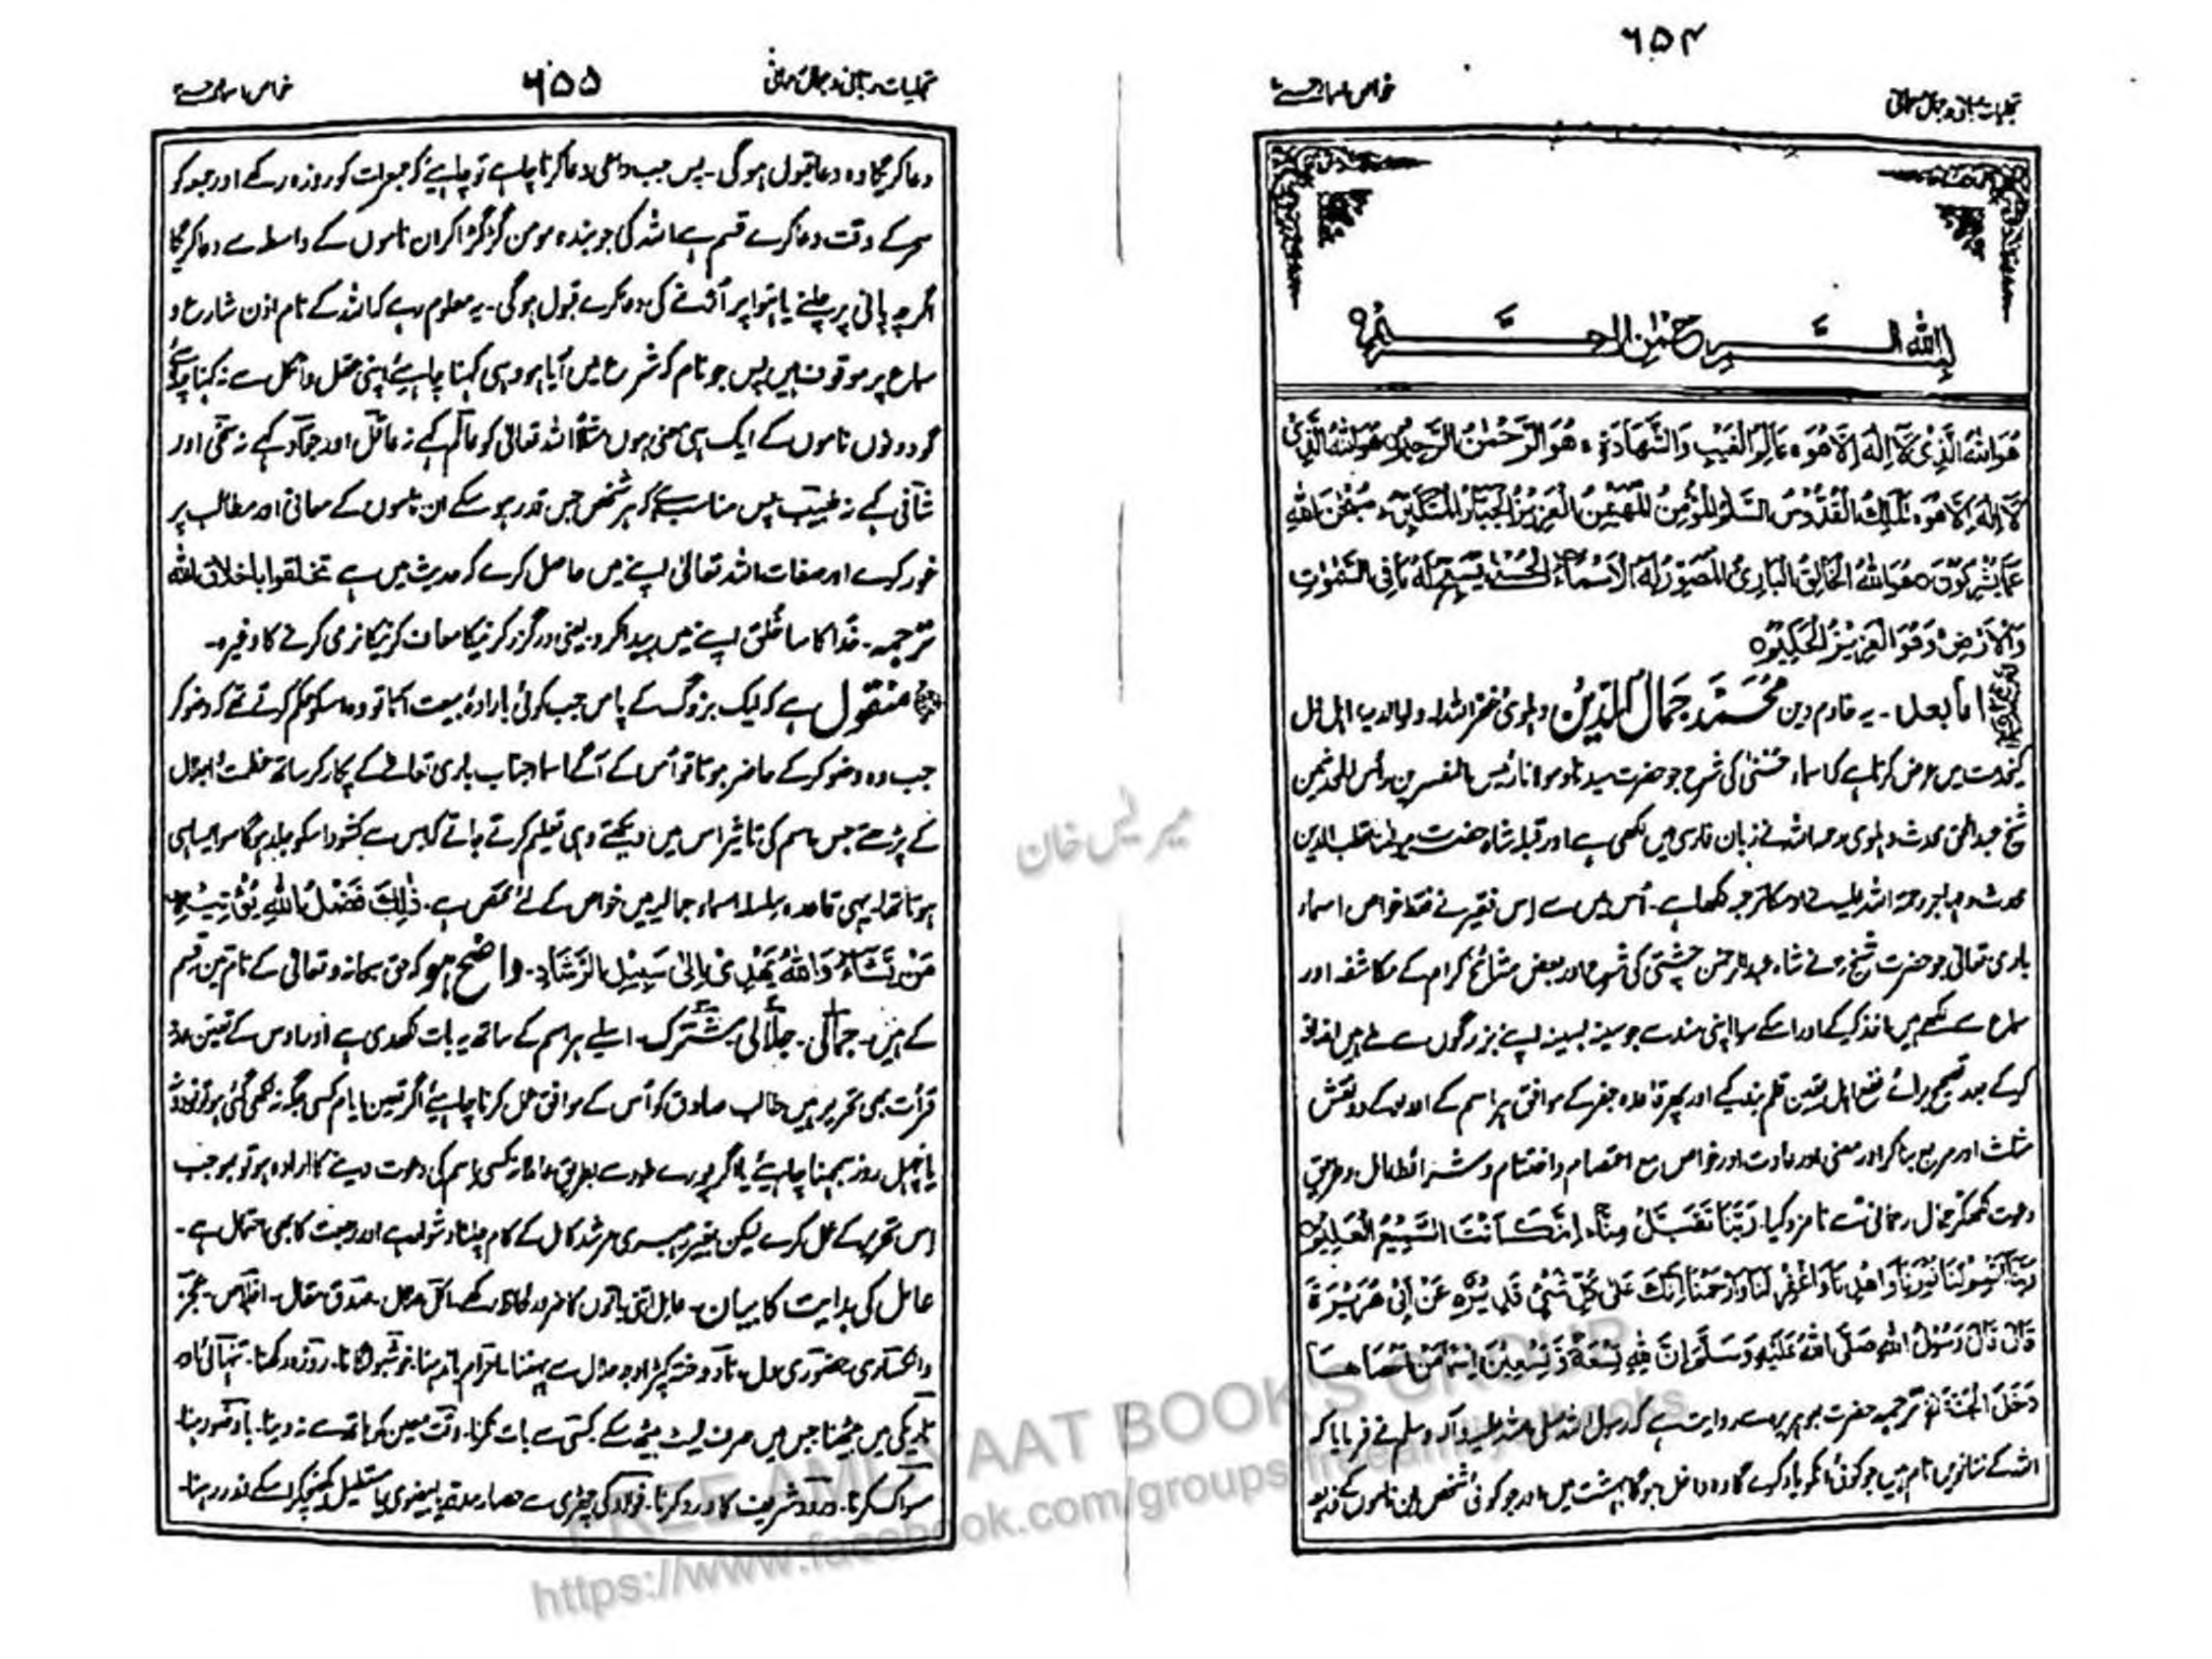 ۶۵۴
خواص اسماء حسنے
بسم الله الرحمن الرحيم
هُوَاللهُ الَّذِىْ لَآ اِلٰهَ اِلَّا هُوَ ۚ عَالِمُ الْغَيْبِ وَالشَّهَادَةِ ۚ هُوَ الرَّحْمٰنُ الرَّحِيْمُ ۝ هُوَاللهُ الَّذِىْ
لَآ اِلٰهَ اِلَّا هُوَ ۚ اَلْمَلِكُ الْقُدُّوْسُ السَّلٰمُ الْمُؤْمِنُ الْمُهَيْمِنُ الْعَزِيْزُ الْجَبَّارُ الْمُتَكَبِّرُ ۚ سُبْحٰنَ اللهِ
عَمَّا يُشْرِكُوْنَ ۝ هُوَ اللهُ الْخَالِقُ الْبَارِئُ الْمُصَوِّرُ لَهُ الْاَسْمَآءُ الْحُسْنٰى يُسَبِّحُ لَهٗ مَا فِى السَّمٰوٰتِ
وَالْاَرْضِ وَهُوَ الْعَزِيْزُ الْحَكِيْمُ ۝
اما بعد ۔ یہ خادم دین مُحَمَّد جَمَالُ الدِّيْن دہلوی غفر اللہ لہ ولوالدیہ اہل دل
کیخدمت میں عرض کرتا ہے کہ اسماء حُسنیٰ کی شرح جو حضرت سیدنا و مولانا رئیس المفسرین رأس المحدثین
شیخ عبدالحق محدث دہلوی رحمہ اللہ نے زبان فارسی میں لکھی ہے اور قبلہ شاہ حضرت مولٰنا قطب الدین
محدث و مہاجر رحمۃ اللہ علیہ نے اوسکا ترجمہ لکھا ہے ۔ اُس میں سے اس فقیر نے فقط خواص اسماء
باری تعالیٰ جو حضرت شیخ رح نے شاہ عبدالرحمٰن چشتی کی شرح اور بعض مشائخ کرام کے مکاشفہ اور
سماع سے لکھے ہیں اخذ کیے اور اسکے سوا اپنی سند سے جو سینہ بسینہ اپنے بزرگوں سے ملے ہیں اضافہ
کیے بعد تصحیح برائے نفع اہل یقین قلم بند کیے اور پھر قاعدہ جفر کے موافق ہر اسم کے اعداد کے دو نقش
مثلث اور مربع بنا کر اور معنی اور عادت اور خواص مع اعتصام و اختتام و شرائط عامل و طریق
دعوت لکھکر جمال رحمانی سے نامزد کیا۔ رَبَّنَا تَقَبَّلْ مِنَّا ۚ اِنَّكَ اَنْتَ السَّمِيْعُ الْعَلِيْمُ ۝
رَبَّنَآ اَتْمِمْ لَنَا نُوْرَنَا وَاغْفِرْ لَنَا وَارْحَمْنَا اِنَّكَ عَلٰى كُلِّ شَىْءٍ قَدِيْرٌ عَنْ اَبِىْ هُرَيْرَةَ
قَالَ قَالَ رَسُوْلُ اللهِ صَلَّى اللهُ عَلَيْهِ وَسَلَّمَ اِنَّ لِلّٰهِ تِسْعَةً وَّتِسْعِيْنَ اِسْمًا مَنْ اَحْصَاهَا
دَخَلَ الْجَنَّةَ ترجمہ حضرت ابوہریرہ سے روایت ہے کہ رسول اللہ صلی اللہ علیہ وآلہ وسلم نے فرمایا کہ
اللہ کے ننانویں نام ہیں جو کوئی انکو یاد کرے گا وہ داخل ہوگا بہشت میں اور جو کوئی شخص ان ناموں کے ذریعہ
۶۵۵
خواص اسماء حسنے
دعا کریگا وہ دعا قبول ہوگی ۔ پس جب داعی دعا کرنا چاہے تو چاہیئے کہ جمعرات کو روزہ رکھے اور جمعہ کو
سحر کے وقت دعا کرے قسم ہے اللہ کی جو بندہ مومن گڑگڑا کر ان ناموں کے واسطے سے دعا کریگا
اگرچہ پانی پر چلنے یا ہوا پر اُڑنے کی دعا کرے قبول ہوگی ۔ یہ معلوم رہے کہ اللہ کے نام اذن شارع و
سماع پر موقوف ہیں پس جو نام کہ شرع میں آیا ہو وہی کہنا چاہیئے اپنی عقل و اٹکل سے نہ کہنا چاہیئے
گو دونوں ناموں کے ایک ہی معنی ہوں مثلاً اللہ تعالیٰ کو عالم کہے نہ عاقل اور جواد کہے نہ سخی اور
شافی کہے نہ طبیب پس مناسب ہے کہ ہر شخص جس قدر ہو سکے ان ناموں کے معانی اور مطالب پر
غور کرے اور صفات اللہ تعالیٰ اپنے میں حاصل کرے کہ حدیث میں ہے تخلقوا باخلاق الله
ترجمہ ۔ خدا کا سا خُلق اپنے میں پیدا کرو یعنی درگزر کرنیکا معاف کرنیکا نرمی کرنے کا وغیرہ ۔
منقول ہے کہ ایک بزرگ کے پاس جب کوئی بارادۂ بیعت آتا تو وہ اسکو حکم کرتے تھے کہ وضو کر
جب وہ وضو کرکے حاضر ہوتا تو اُس کے آگے اسماء جناب باری تعالےٰ کے پکار کر ساتھ عظمت و اجلال
کے پڑھتے جس اسم کی تاثیر اس میں دیکھتے وہی تعلیم کرتے جاتے کہ اس سے کشود اسکو جلد ہوگا سو ایسا ہی
ہوتا تھا۔ یہی قاعدہ سلسلہ اسماء جمالیہ میں خواص کے لئے مختص ہے ۔ ذٰلِكَ فَضْلُ اللهِ يُؤْتِيْهِ
مَنْ يَّشَآءُ وَاللهُ يَهْدِىْ اِلٰى سَبِيْلِ الرَّشَادِ ۔ واضح ہو کہ حق سبحانہ و تعالیٰ کے نام تین قسم
کے ہیں ۔ جمالی ۔ جلالی مشترک ۔ اسلیے ہر اسم کے ساتھ یہ بات لکھدی ہے اور اوس کے تعین عدد
قرأت بھی تحریر ہیں طالب صادق کو اُس کے موافق عمل کرنا چاہیئے اگر تعین ایام کسی جگہ نہ لکھی گئی ہو تو
یا چہل روز سمجھنا چاہیئے یا اگر پورے طور سے بطریق عاملانہ کسی اسم کی دعوت دینے کا ارادہ ہو تو بموجب
اس تحریر کے عمل کرے لیکن بغیر رہبری مرشد کامل کے کام چلنا دشوار ہے اور رجعت کا بھی احتمال ہے ۔
عامل کی ہدایت کا بیان ۔ عامل اتنی باتوں کا ضرور لحاظ رکھے اکل حلال ۔ صدق مقال ۔ اخلاص ۔ عجز
وانکساری حضوری دل ۔ نادوختہ کپڑا وجہ حلال سے پہننا۔ احرام باندھنا۔ خوشبو لگانا۔ روزہ رکھنا۔ تنہائی اور
تاریکی میں بیٹھنا جس میں صرف لیٹ بیٹھ سکے کسی سے بات نکرنا۔ وقت معین کو ہاتھ سے نہ دینا۔ باوضو رہنا۔
مسواک کرنا۔ درود شریف کا ورد کرنا۔ فولاد کی چھری سے حصار مدور یا بیضوی یا مستطیل کھینچکر اسکے اندر رہنا۔
میر یس خان
FREE AMLIYAAT BOOK'S GROUP
https://www.facebook.com/groups/freeamliyatbooks